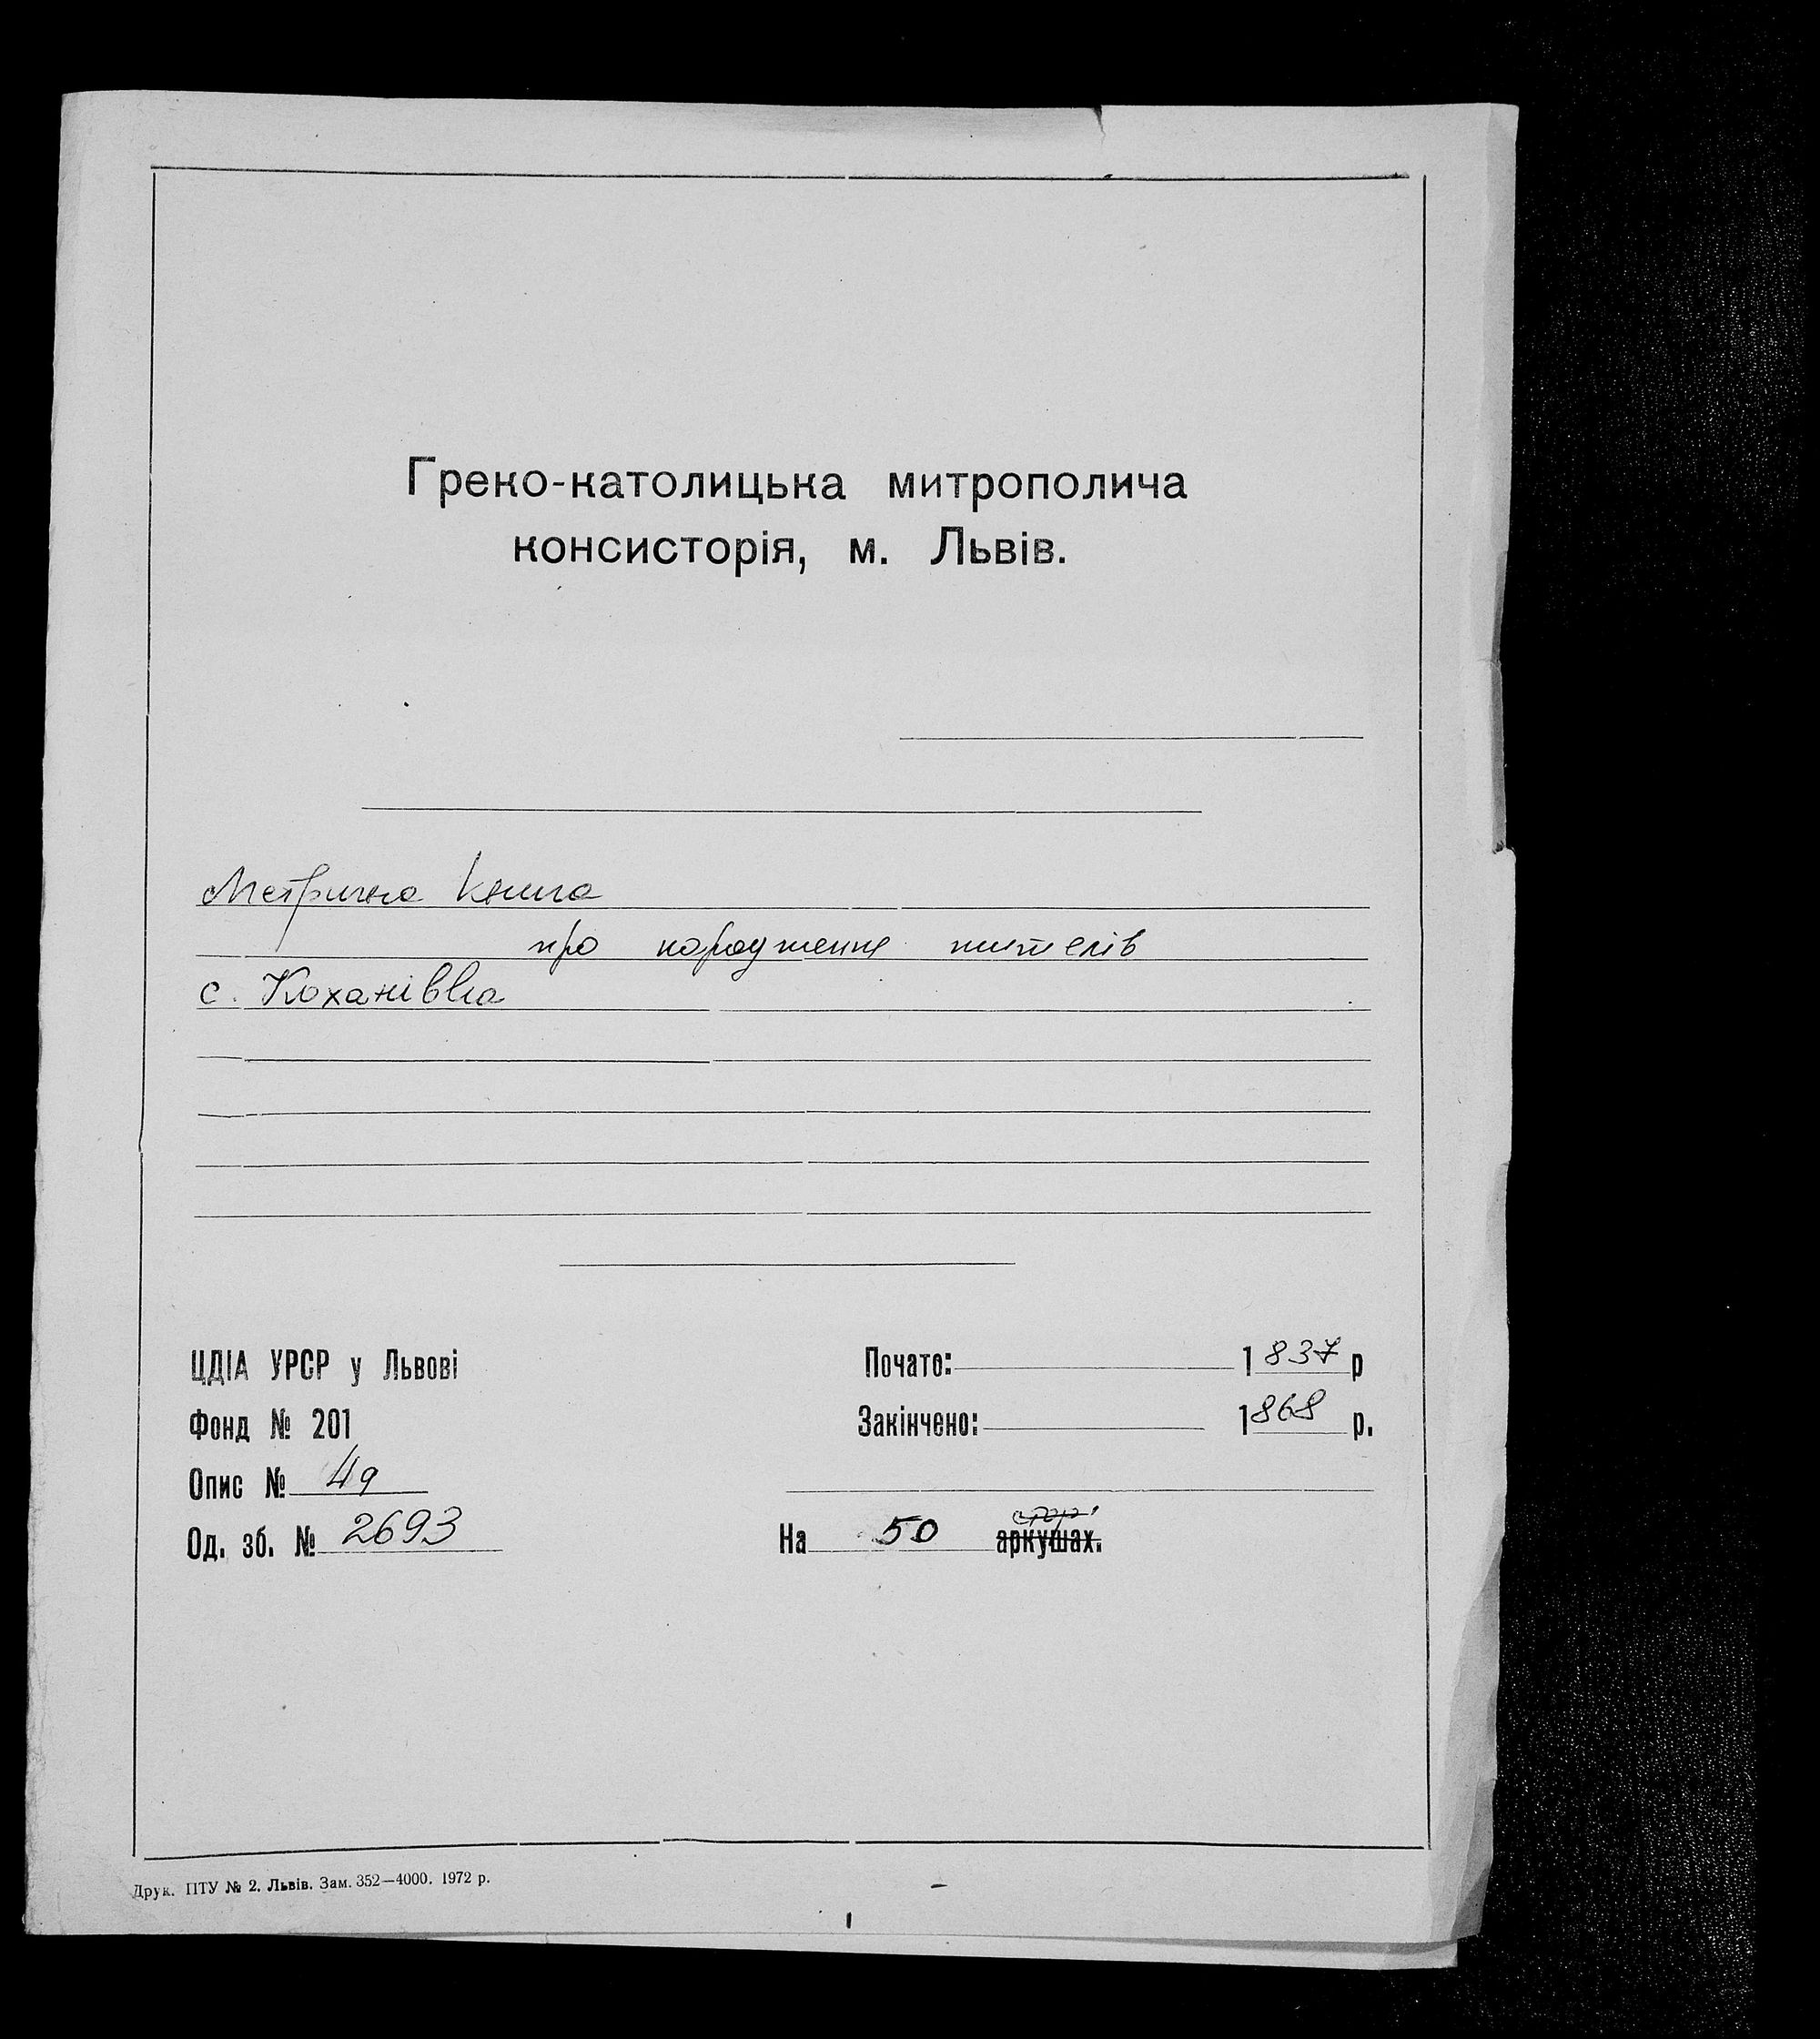 Греко-католицька митрополича
консисторія, м. Львів.
Метрична книга
про народження жителів
с. Коханівка
ЦДІА УРСР у Львові
Почато: 1837 р
Фонд № 201
Закінчено: 1868 р.
Опис № 4а
Од. зб. № 2693
На 50 стор. аркушах.
Друк. ПТУ № 2. Львів. Зам. 352—4000. 1972 р.